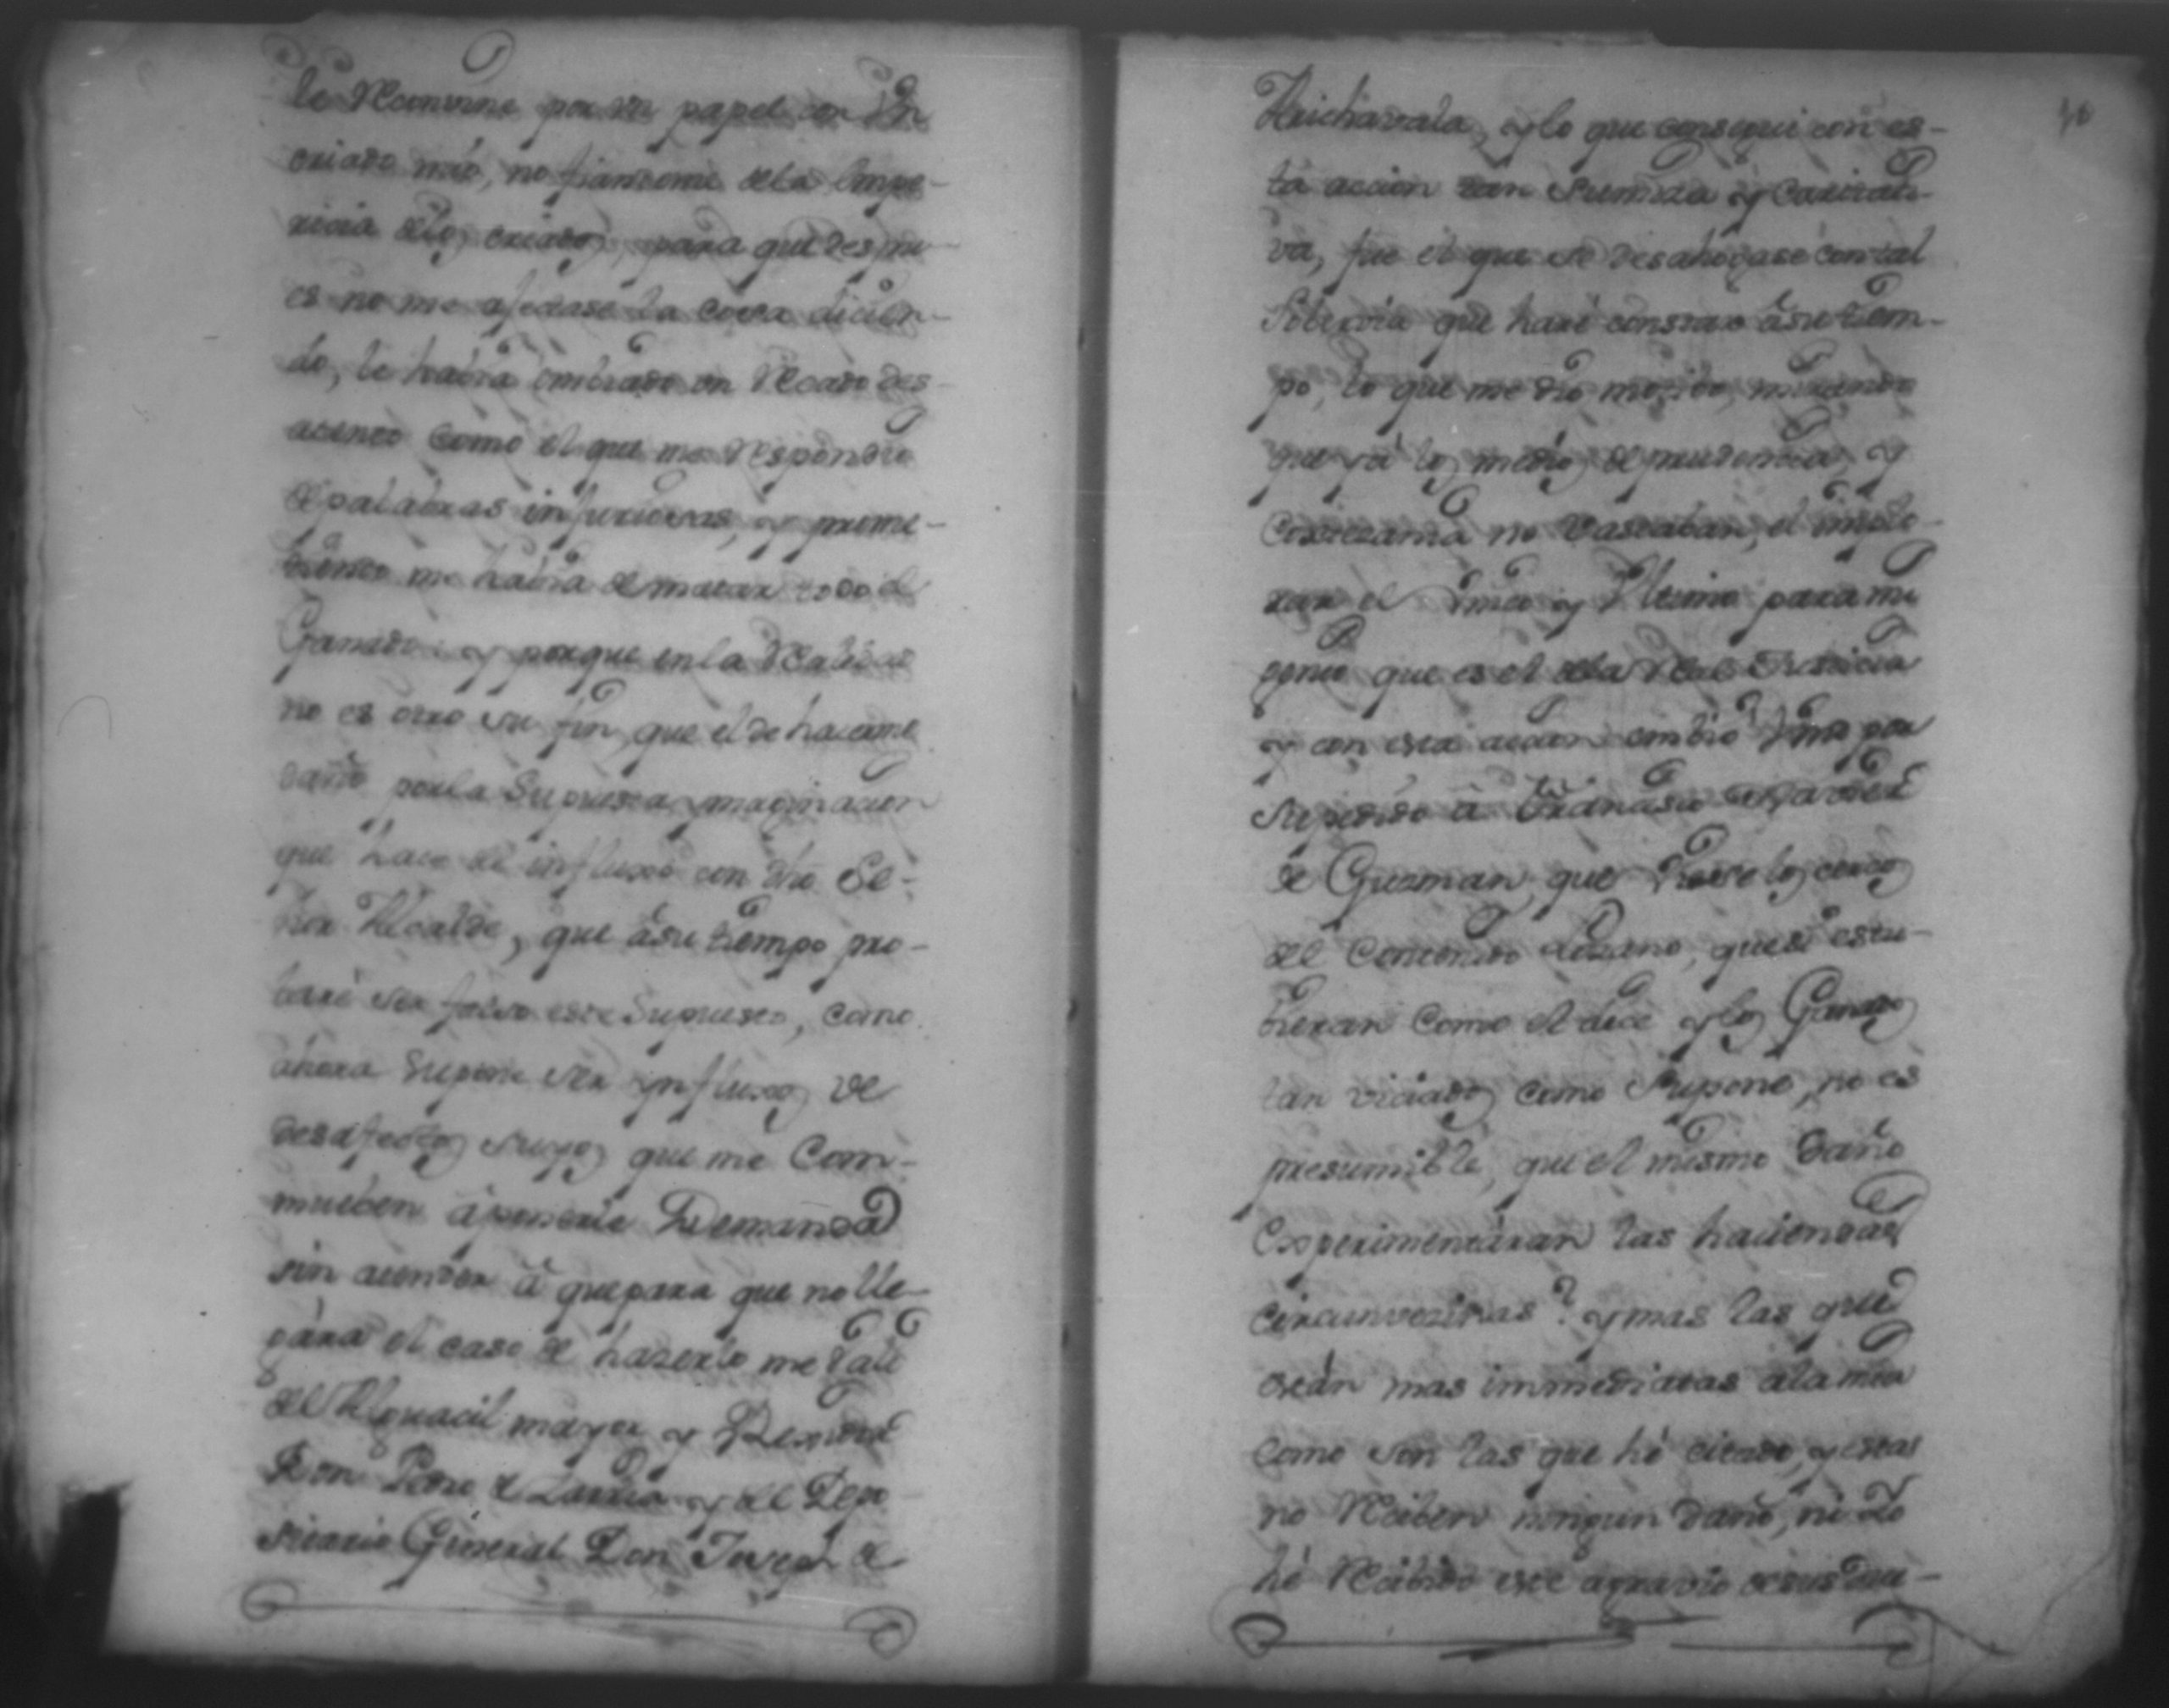 le Reconvine por un papel con Un
criado mio, no fiandome de la Impe-
ricia de los criados, para que despu-
es no me afease la cosa dicien-
do, le havia embiado un Recado des-
atento como el que me Respondió
de palabras injuriosas, y prome-
tiendo me havia de matar todo el
Ganado: y porque en la Realidad
no es otro su fin, que el de hacerme
daño por la Supuesta ymaginacion
que hace de influxo con dho Se-
ñor Alcalde, que á su tiempo pro-
baré ser falso este Supuesto, como
ahora Supone ser ynfluxos de
desafectos suyos que me Com-
mueben á ponerle Demanda
sin atender á que para que no lle-
gára el caso de hazerlo me valí
del Alguacil mayor y Regidor
Don Pedro de y del Depo-
sitario General Don Joseph de
Urichavala, y lo que consegui con es-
ta accion tan Sumisa y Caritati-
va, fue el que se desahogase con tal
Sobervia que haré constar á su tiem-
po, lo que me dio motivo, mirando
que yá los medios de prudencia, y
Cortezania no Vastaban, el implo-
rar el Unico y Ultimo para mi
genio que es el de la Real Justicia
y con esta accion embió Vmd por
Supedido á Athanasio
de Guzman, que Viese los cercos
del Contenido que si estu-
bieran Como el dice y los Ganados
tan viciados como Supone, no es
presumible, que el mismo Daño
Experimentáran las haciendas
circunvezinas? y mas las que
están mas immediatas á la mia
Como son las que hé citado, y estas
no Reciben ningun daño, ni Yo
hé Recibido este agravio de sus Due-